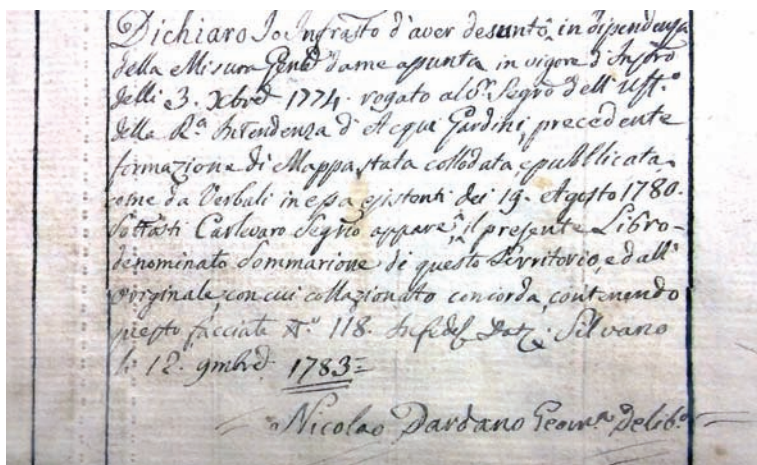 Dichiaro Io Infrasto d'aver desunto, in dipendenza
della Misura Genle dame assunta in vigore d'Instro
delli 3. Xbre 1774. rogato al Sr. Segro dell'Uff.o
della Ra. Intendenza d'Acqui Gardini, precedente
formazione di Mappa, stata collodata, e pubblicata
come da Verbali in essa esistenti dei 19. Agosto 1780.
Sottasti Carlevaro Segrio appare, il presente Libro
denominato Sommarione di questo Territorio, e dall'
originale, con cui collazionato concorda, contenendo
questo facciate No. 118. In fede Silvano
li 12. 9mbre 1783=
Nicolao Dardano Geom.a Delib.o